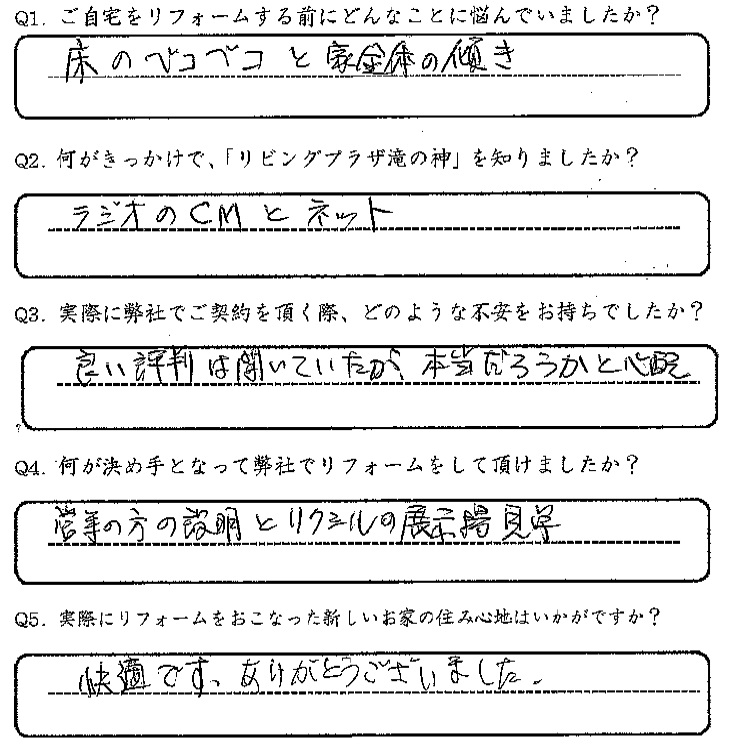 Q1. ご自宅をリフォームする前にどんなことに悩んでいましたか？
床のベコベコと家全体の傾き
Q2. 何がきっかけで、「リビングプラザ滝の神」を知りましたか？
ラジオのCMとネット
Q3. 実際に弊社でご契約を頂く際、どのような不安をお持ちでしたか？
良い評判は聞いていたが、本当だろうかと心配
Q4. 何が決め手となって弊社でリフォームをして頂けましたか？
営業の方の説明とリクシルの展示場見学
Q5. 実際にリフォームをおこなった新しいお家の住み心地はいかがですか？
快適です、ありがとうございました。